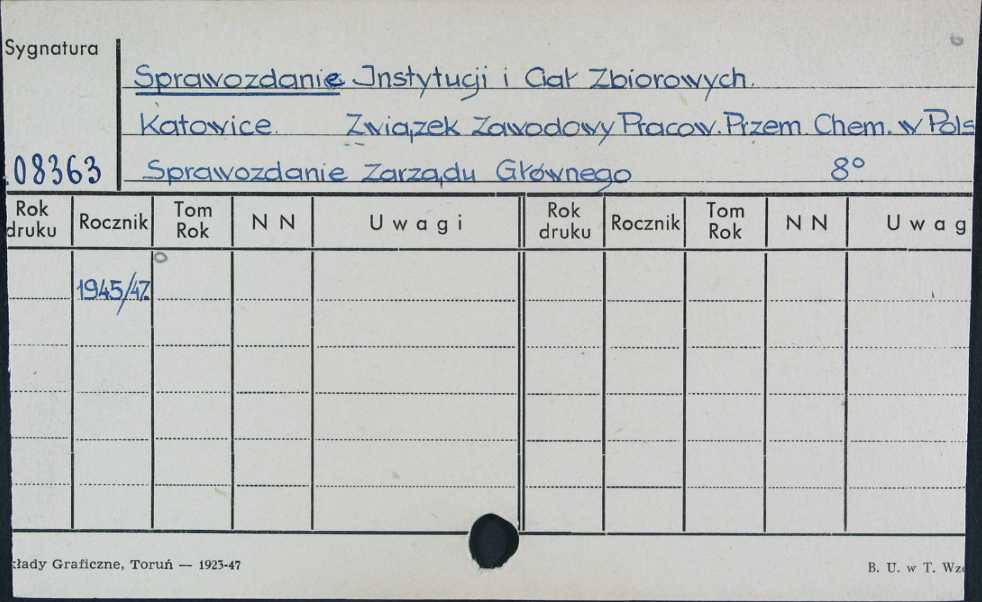 Sygnatura
Sprawozdanie Instytucji i Ciał Zbiorowych.
Katowice. Związek Zawodowy Pracow. Przem. Chem. w Pols
08363 Sprawozdanie Zarządu Głównego 8°
Rok druku Rocznik Tom Rok N N Uwagi Rok druku Rocznik Tom Rok N N Uwag
1945/47.
kłady Graficzne, Toruń — 1923-47 B. U. w T. Wzó